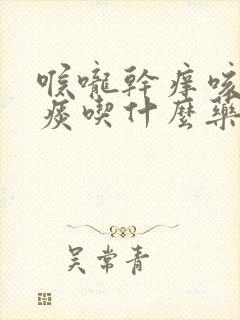 喉嚨幹癢咳
痰喫什麼藥
吴常青